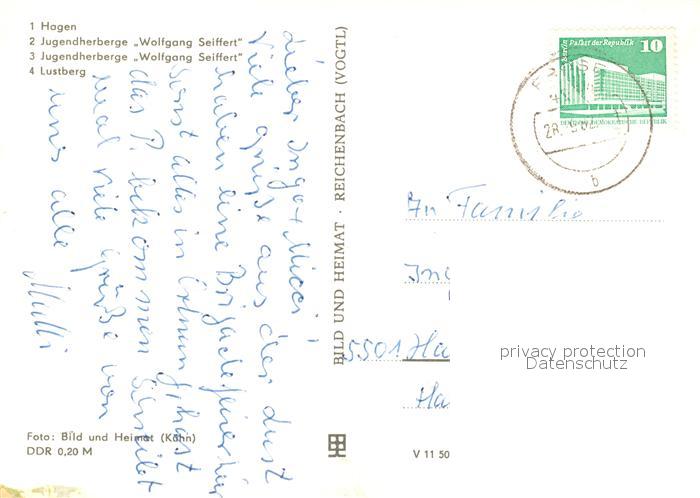 1 Hagen
2 Jugendherberge „Wolfgang Seiffert"
3 Jugendherberge „Wolfgang Seiffert"
4 Lustberg
Lieber Ingo + Micci!
Viele Grüße aus der
haben eine Brigadefeier hier
sonst alles in Ordnung, hast
das P. bekommen schreibt
mal viele Grüße von
uns alle
Mutti
Foto: Bild und Heimat (Kühn)
DDR 0,20 M
BILD UND HEIMAT · REICHENBACH (VOGTL)
V 11 50
Berlin Palast der Republik 10
DEUTSCHE DEMOKRATISCHE REPUBLIK
28.
b
An Familie
In
5501 Ha
Ha
privacy protection
Datenschutz